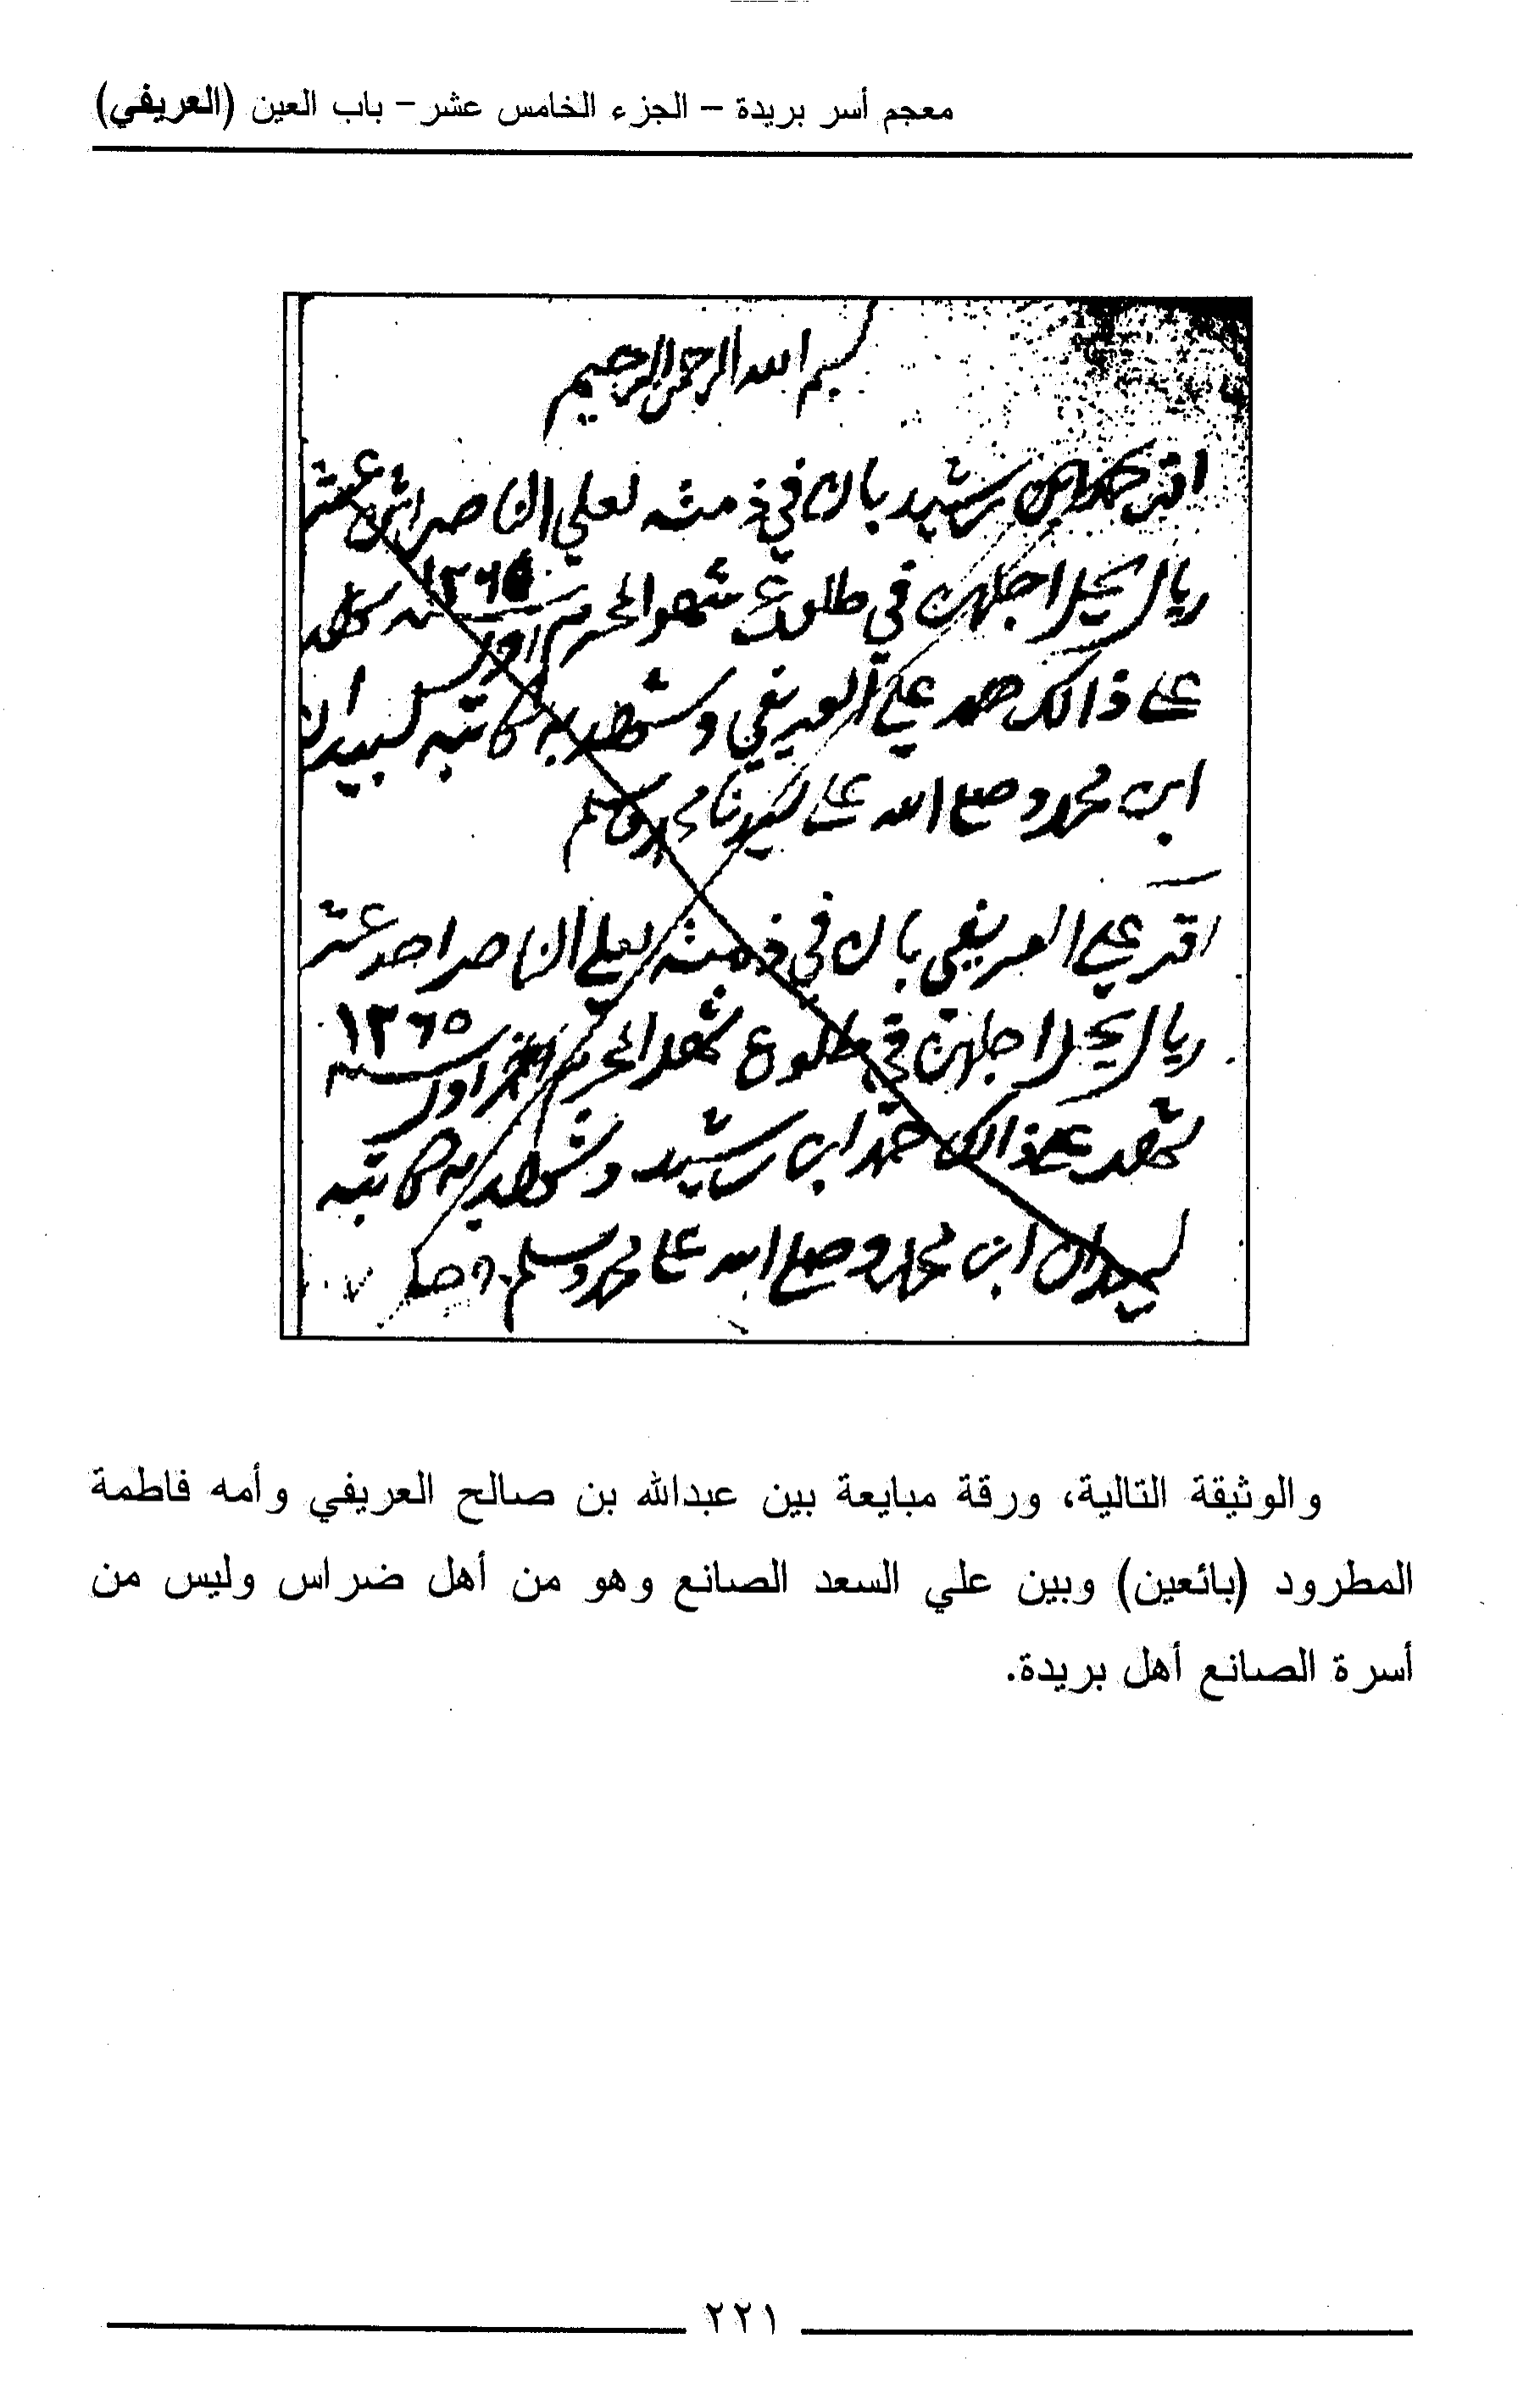 معجم أسر بريدة – الجزء الخامس عشر – باب العين (العريفي)
بسم الله الرحمن الرحيم
اقر حمد ابن رشيد بان في ذمته لعلي الناصر اثنى عشر
ريال يحل اجلهن في طلوع شهر المحرم اول سنه ١٣٦٥ شهد
على ذالك حمد علي العريفي وشهد به كاتبه
ابن محمد وصلى الله على سيدنا محمد وسلم
اقر علي العريفي بان في ذمته لعلي الناصر احد عشر
ريال يحل اجلهن في طلوع شهر المحرم اول سنه ١٣٦٥
شهد على ذالك حمد ابن رشيد وشهد به كاتبه
ابن محمد وصلى الله على محمد وسلم
والوثيقة التالية، ورقة مبايعة بين عبدالله بن صالح العريفي وأمه فاطمة
المطرود (بائعين) وبين علي السعد الصانع وهو من أهل ضراس وليس من
أسرة الصانع أهل بريدة.
٢٢١